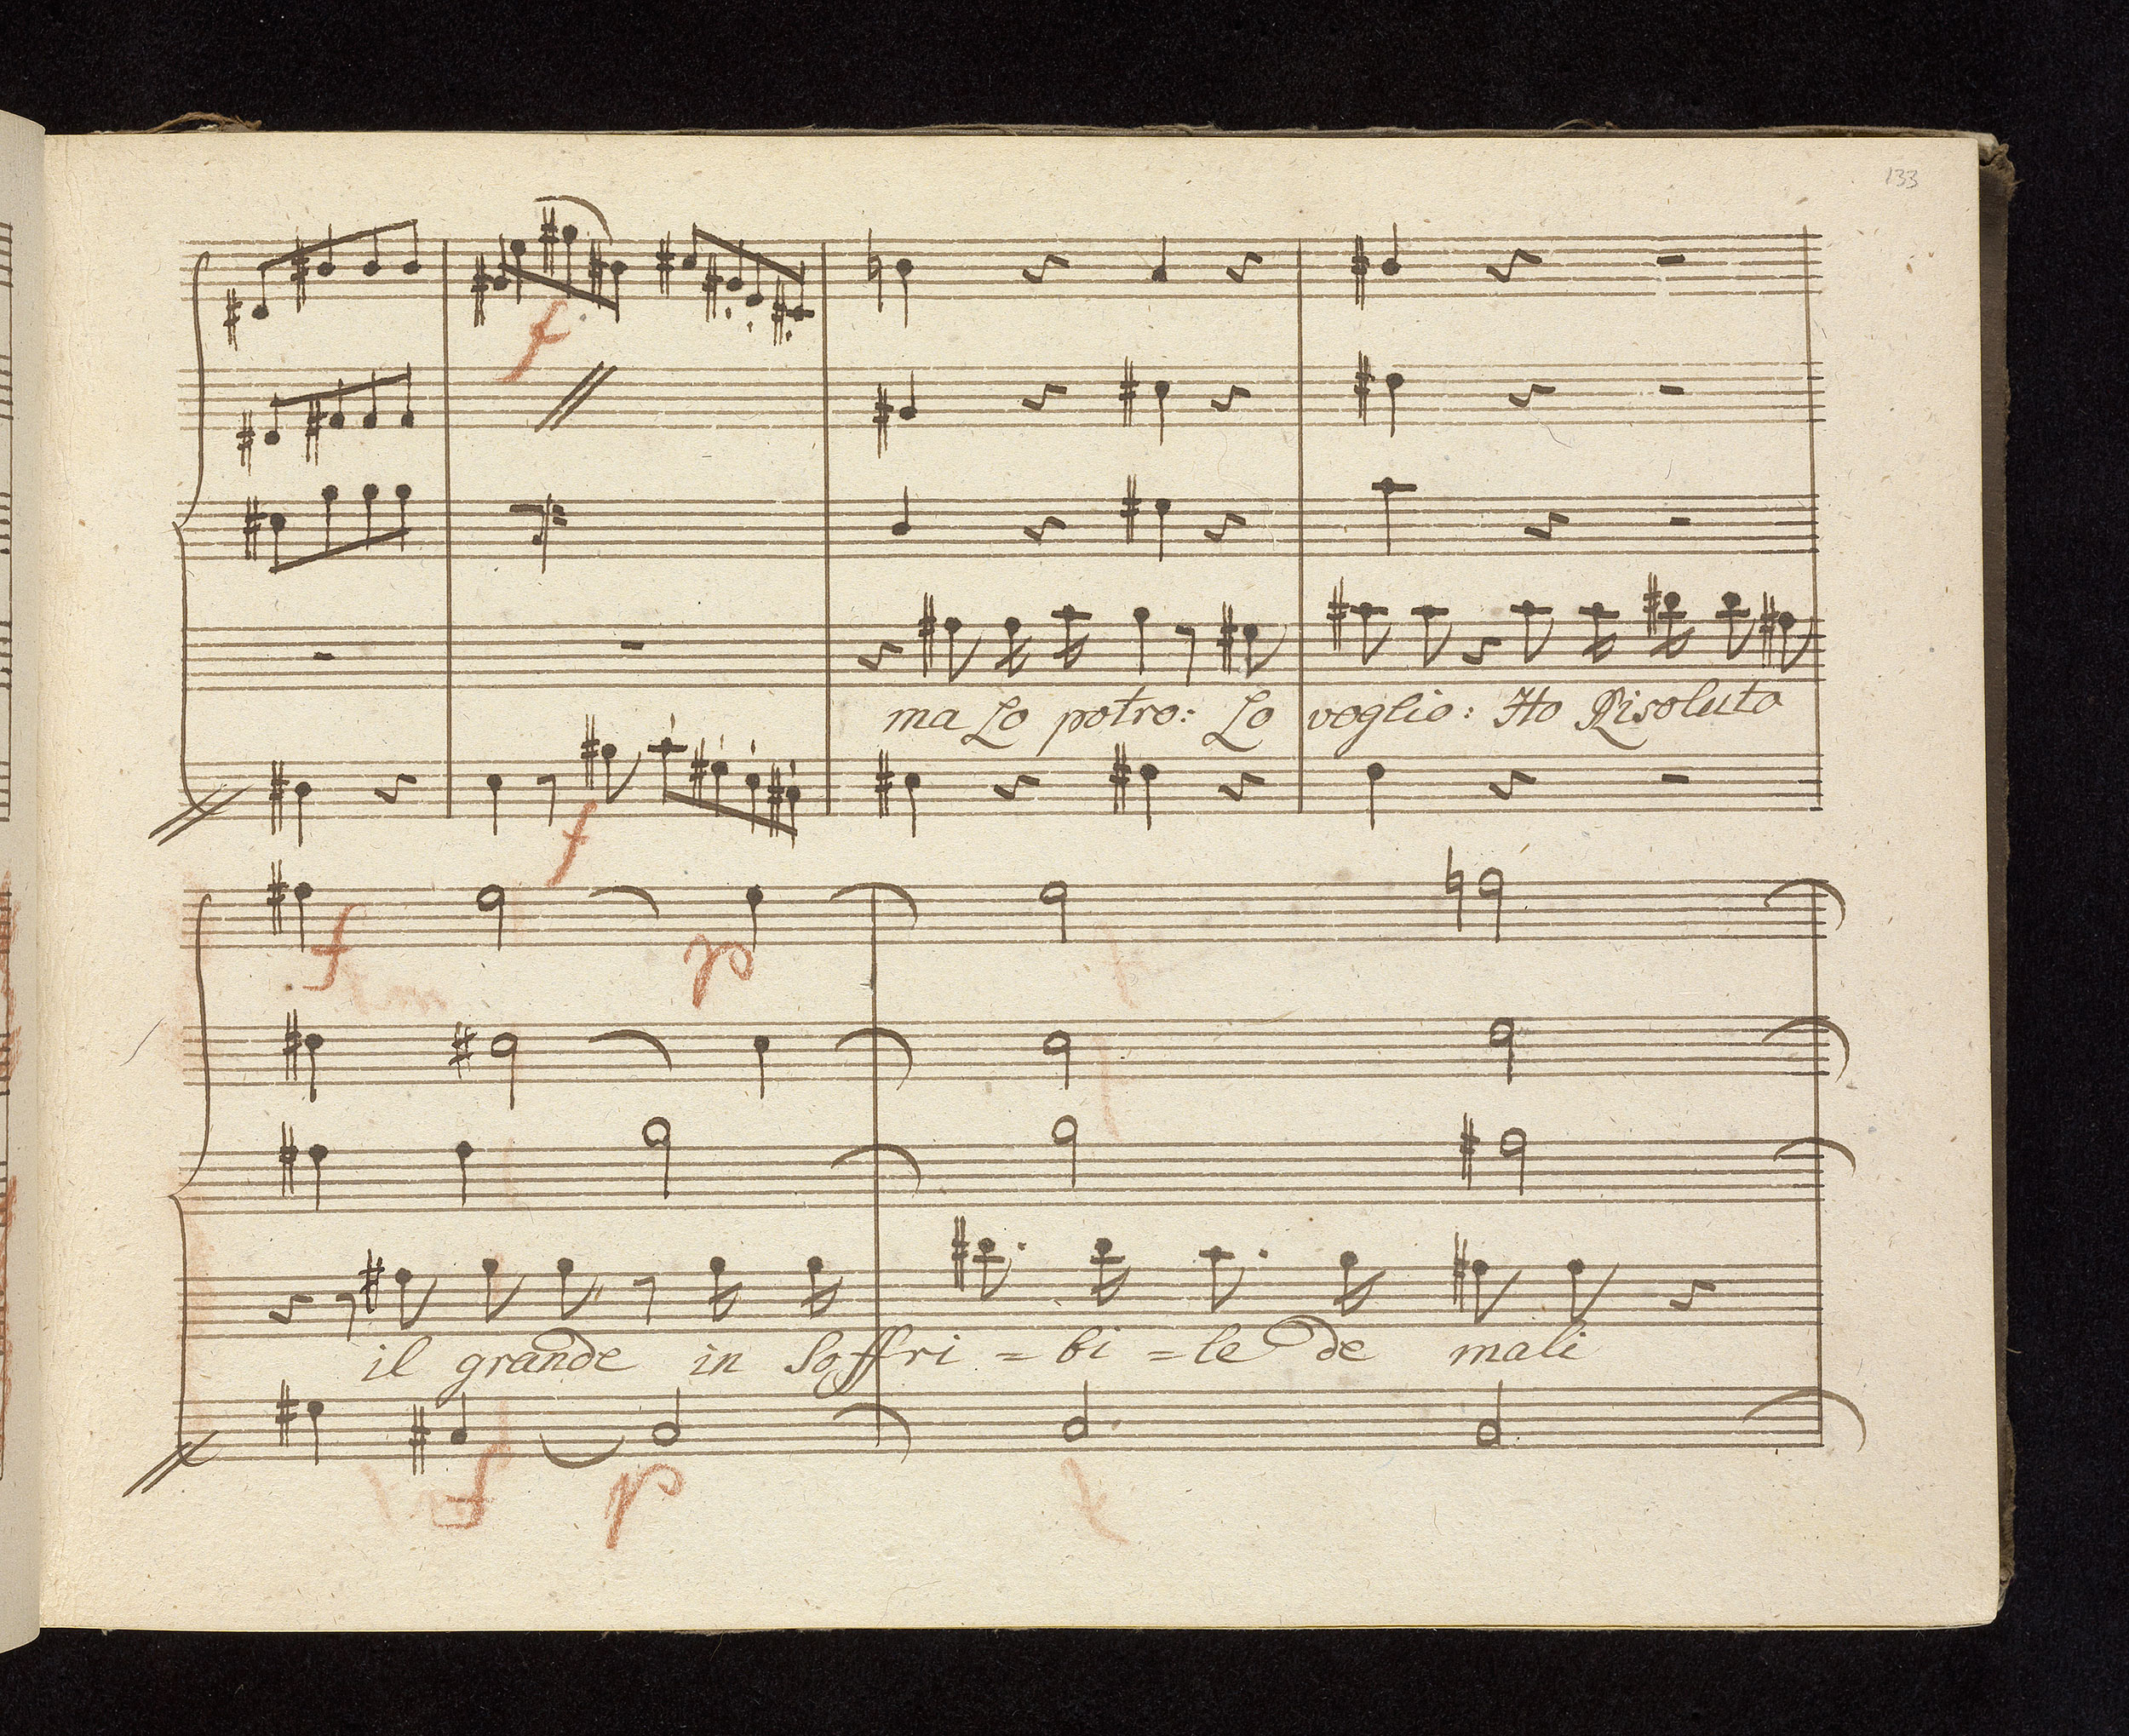 133
f
ma Lo potro: Lo voglio: Ho Risoluto
f
f p
il grande in Soffri = bi = le de mali
f p